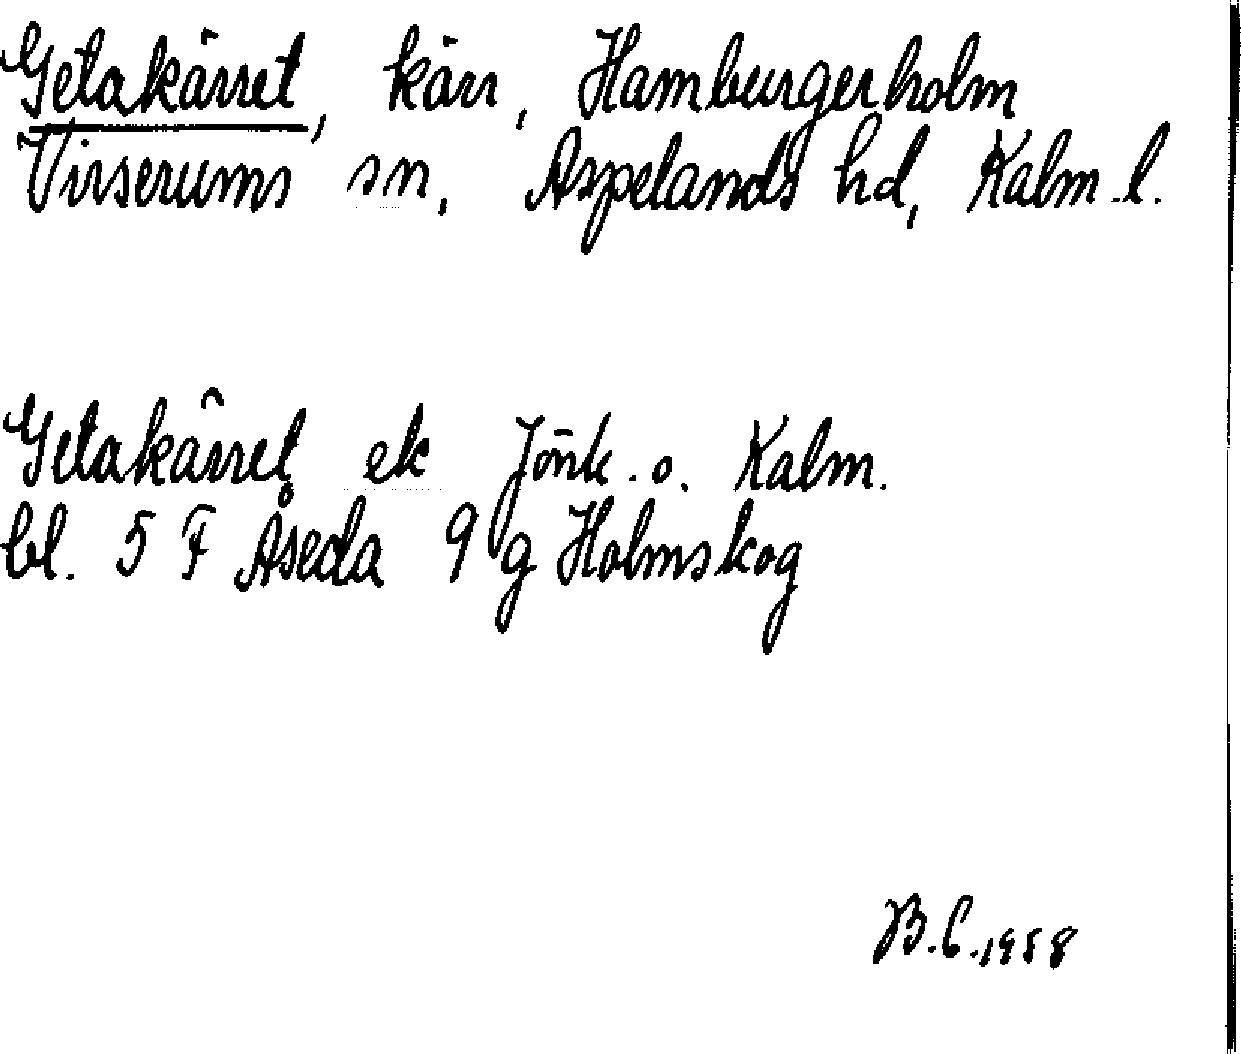 Getakärret, kärr, Hamburgerholm
Virserums sn, Aspelands hd, Kalm.l.
Getakärret ek Jönk. o. Kalm.
bl. 5 F Åseda 9 g Holmskog
B.C.1958